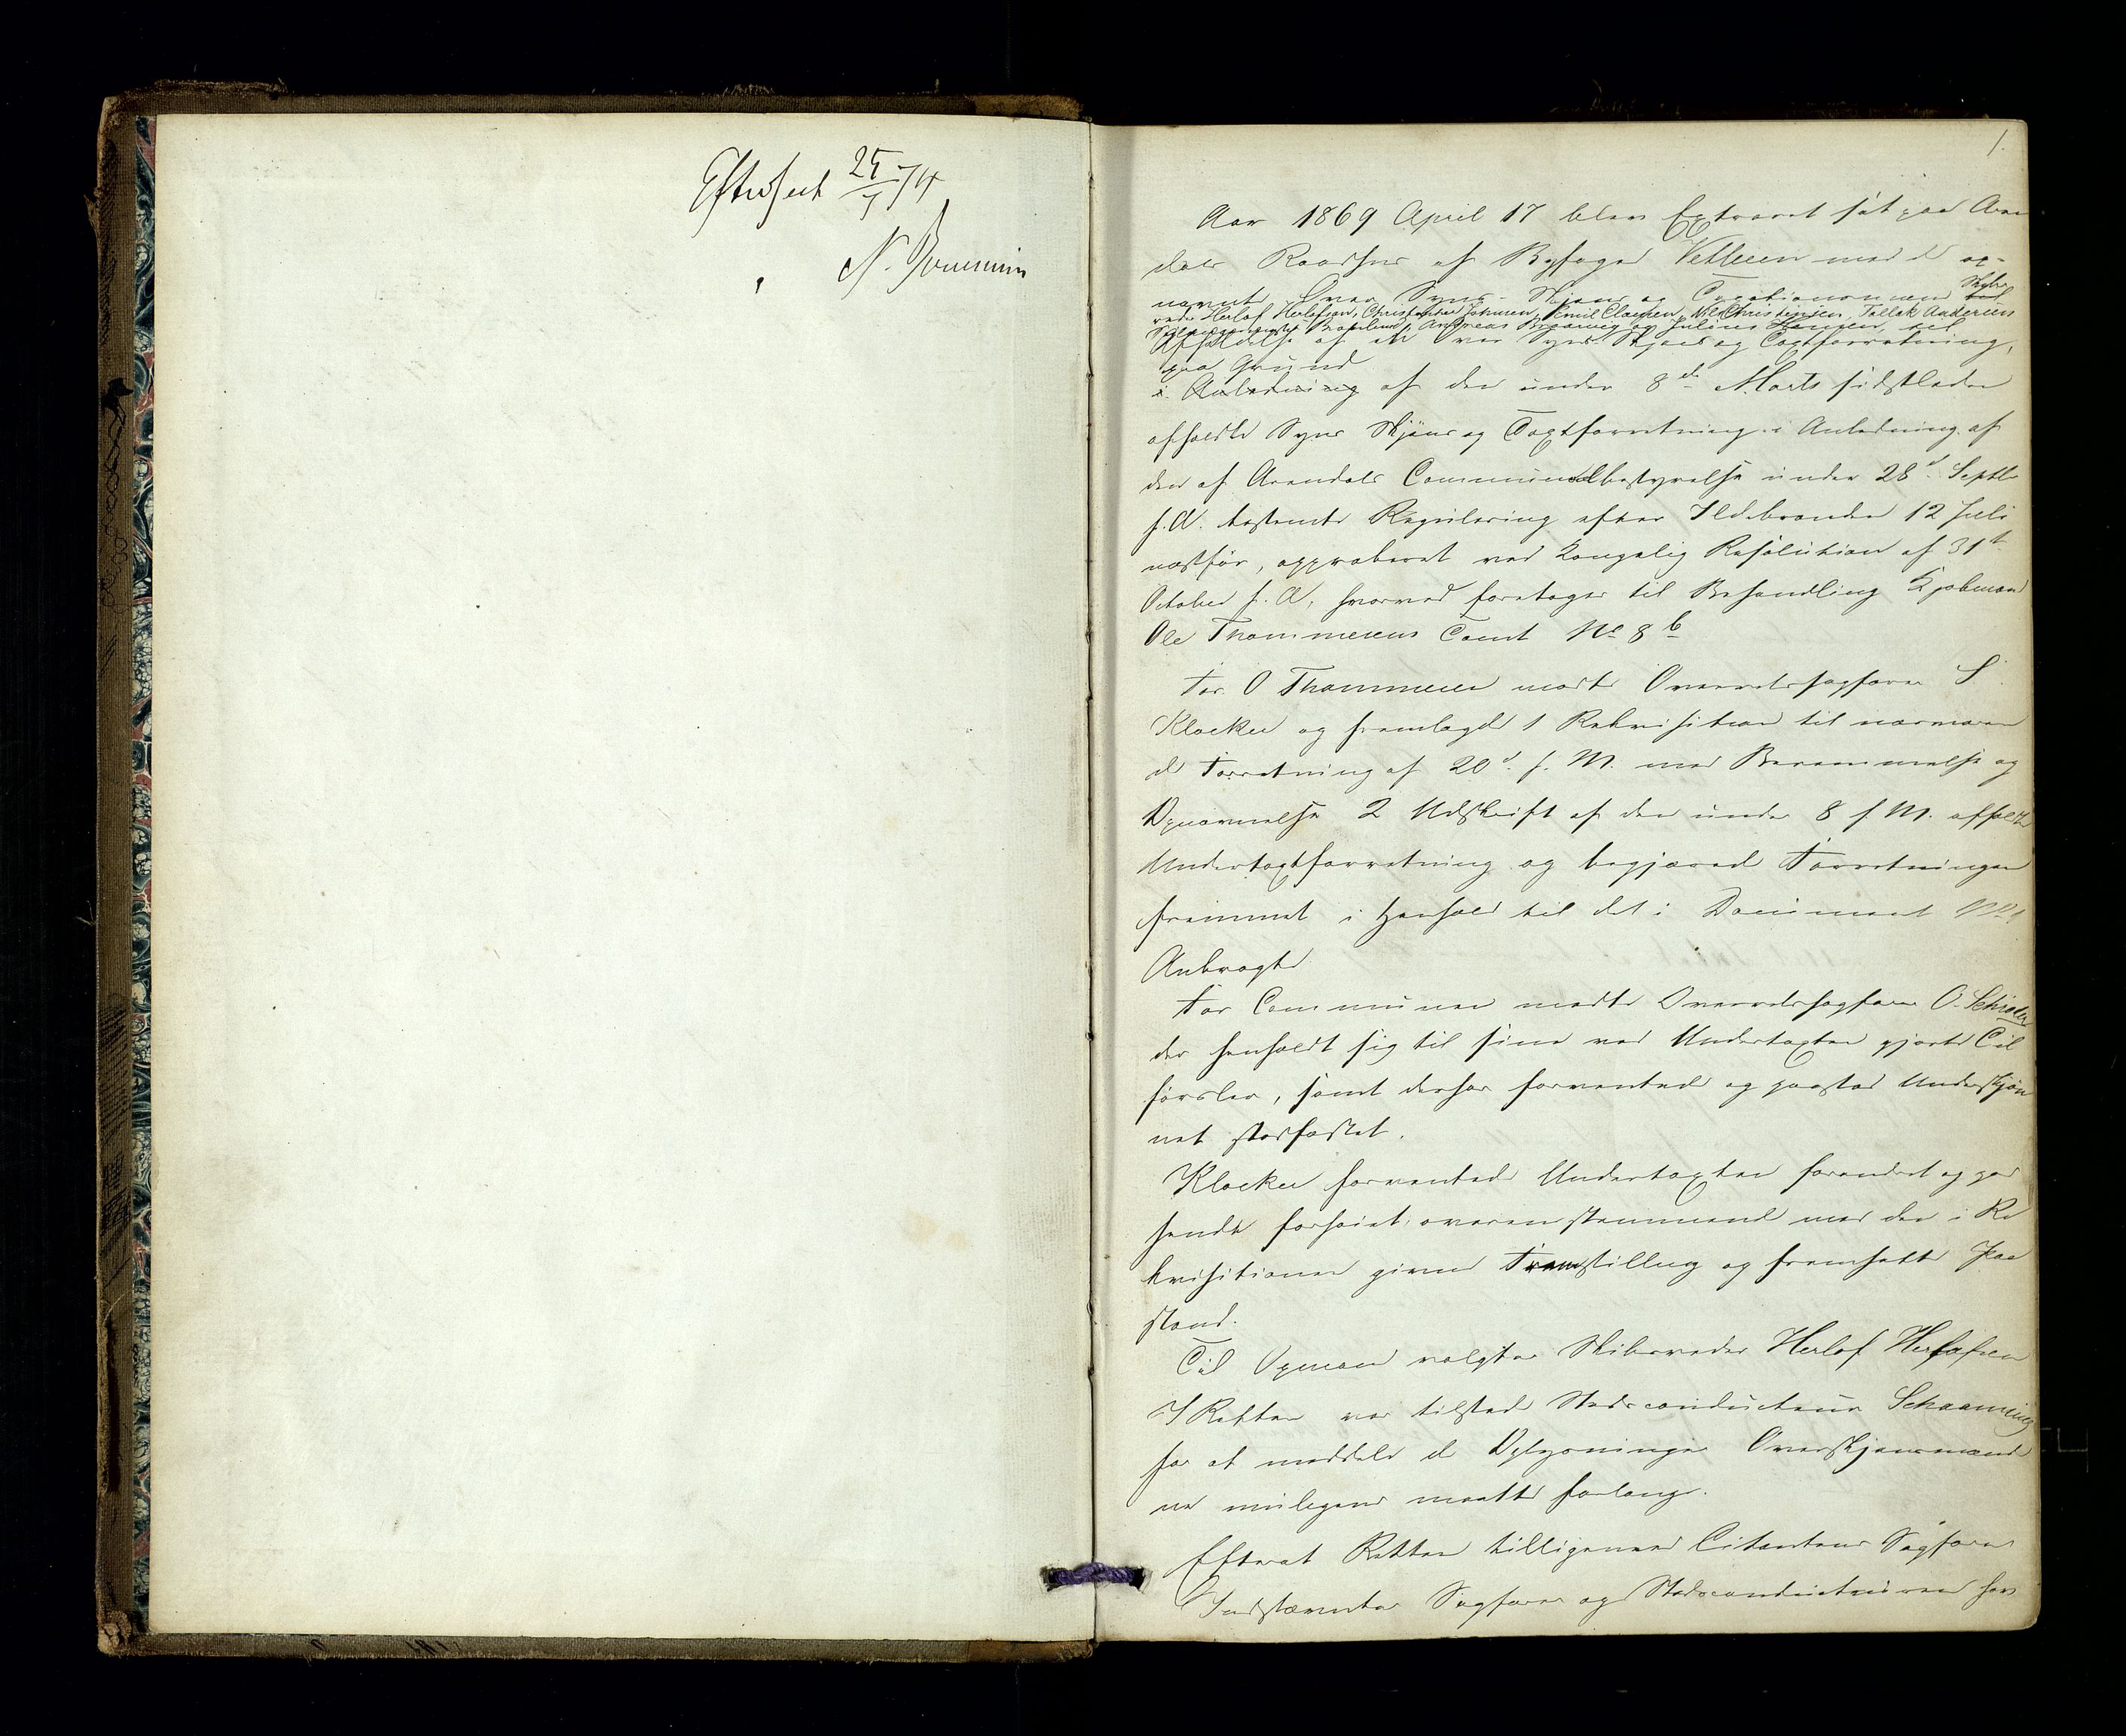 Efterseet 25/1 74
N.
1.
Aar 1869 April 17 blev Extraret sat paa Aren
dals Raadhus af Byfoged Vetlesen med de op-
nævnte Over Syns- Skjøns og Taxationsmænd Skibs-
reder Herlof Herlofsen, Christopher Johnsen, Emil Claesen, Nils Christensen, Tallak Andersen
Andreas og Julius Hansen, til
Afholdelse af en Over Syns Skjøns og Taxtforretning,
paa Grund
i Anledning af den under 8de Marts sidstleden
afholdte Syns Skjøns og Taxtforretning i Anledning af
den af Arendals Communebestyrelse under 28d Septbr
f. A. bestemte Regulering efter Ildebranden 12 Juli
næstfør, approberet ved Kongelig Resolution af 31te
October f. A, hvorved foretages til Behandling Kjøbmand
Ole Thommesens Tomt No 8 b
For O Thommesen mødte Overretssagfører S
Klocker og fremlagde 1 Rekvisition til nærværen
de Forretning af 20d. f. M. med Berammelse og
Opnævnelse 2 Udskrift af den under 8 f M. afholdte
Undertaxtforretning og begjærede Forretningen
fremmet i Henhold til det i Document No 1
Anbragte
For Communen mødte Overretssagfører O. Schrøder
der henholdt sig til sine ved Undertaxten gjorte Til
førsler, samt derhos formentede og paastod Underskjøn
net stadfæstet.
Klocker formentede Undertaxten forandret og paa
overensstemmende med den i Re
kvisitionen givne Fremstilling og fremsatte Paa
stand.
Til Opmand valgtes Skibsreder Herlof Herlofsen
I Retten var tilstede Stadsconducteur Schaaning
for at meddele de Oplysninger Overskjønsmænde
ne muligens maatte forlange.
Efterat Retten tilligemed Citantens Sagfører
Indstævntes Sagfører og Stadsconducteuren hav